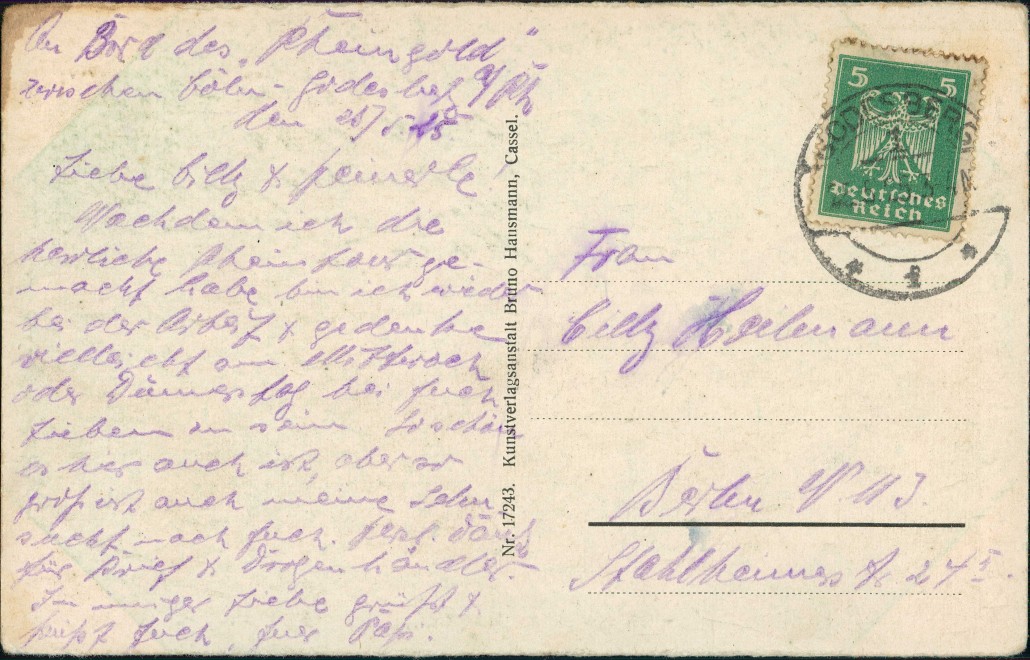 An Bord des „Rheingold“
zwischen Cöln-Godesberg a/Rh
den 25/5 25
Liebe Cilly &
Nachdem ich die
herrliche Rheintour ge-
macht habe bin ich wieder
bei der Arbeit & gedenke
vielleicht am Mittwoch
oder Donnerstag bei Euch
Lieben zu sein. So schön
es hier auch ist, aber so
groß ist auch meine Sehn
sucht nach Euch. Herzl. Dank
für Brief & Drogenhändler.
In inniger Liebe grüßt &
küßt Euch, Euer Papi.
Nr. 17243. Kunstverlagsanstalt Bruno Hansmann, Cassel.
5 5
Deutsches
Reich
GODESBERG
* f *
Frau
Cilly Heilmann
Berlin N 113
Stahlheimer Str 24